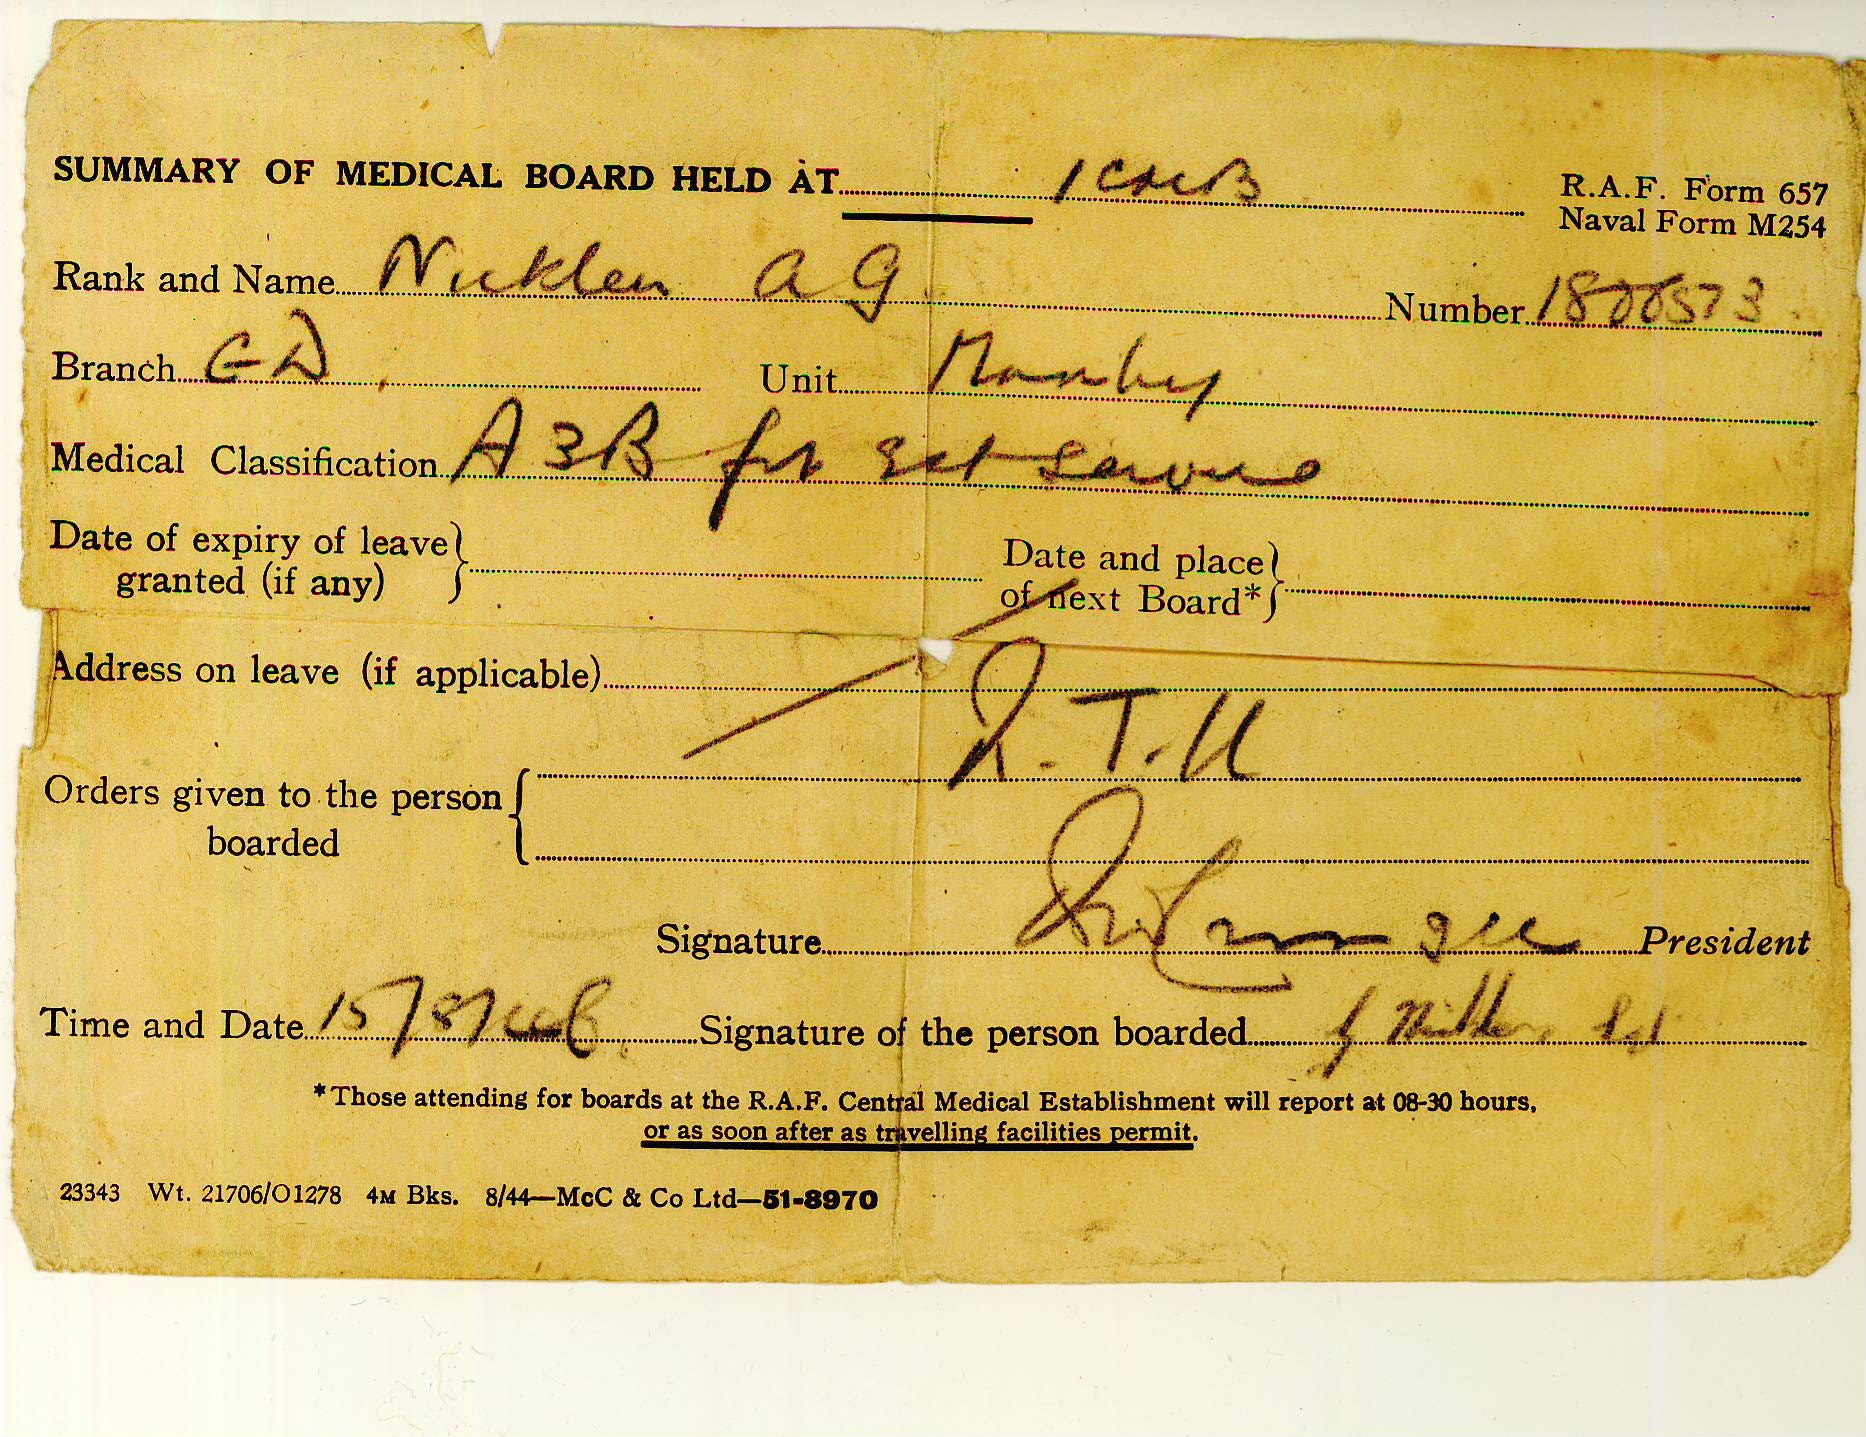 SUMMARY OF MEDICAL BOARD HELD AT 1 CMB
R.A.F. Form 657
Naval Form M254
Rank and Name Nicklen A G Number
Branch GD Unit Manby
Medical Classification A3B fit service
Date of expiry of leave granted (if any) Date and place of next Board*
Address on leave (if applicable)
Orders given to the person boarded R.T.U
Signature President
Time and Date 15/8/46 Signature of the person boarded
*Those attending for boards at the R.A.F. Central Medical Establishment will report at 08-30 hours,
or as soon after as travelling facilities permit.
23343 Wt. 21706/O1278 4M Bks. 8/44—McC & Co Ltd—51-8970